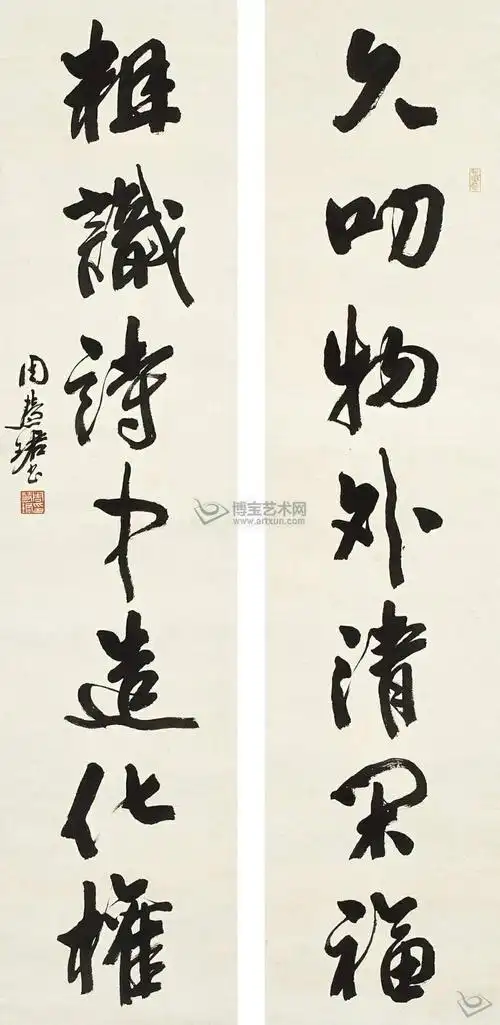 久叨物外清閑福
粗識詩中造化權
周慧珺书
博宝艺术网
www.artxun.com